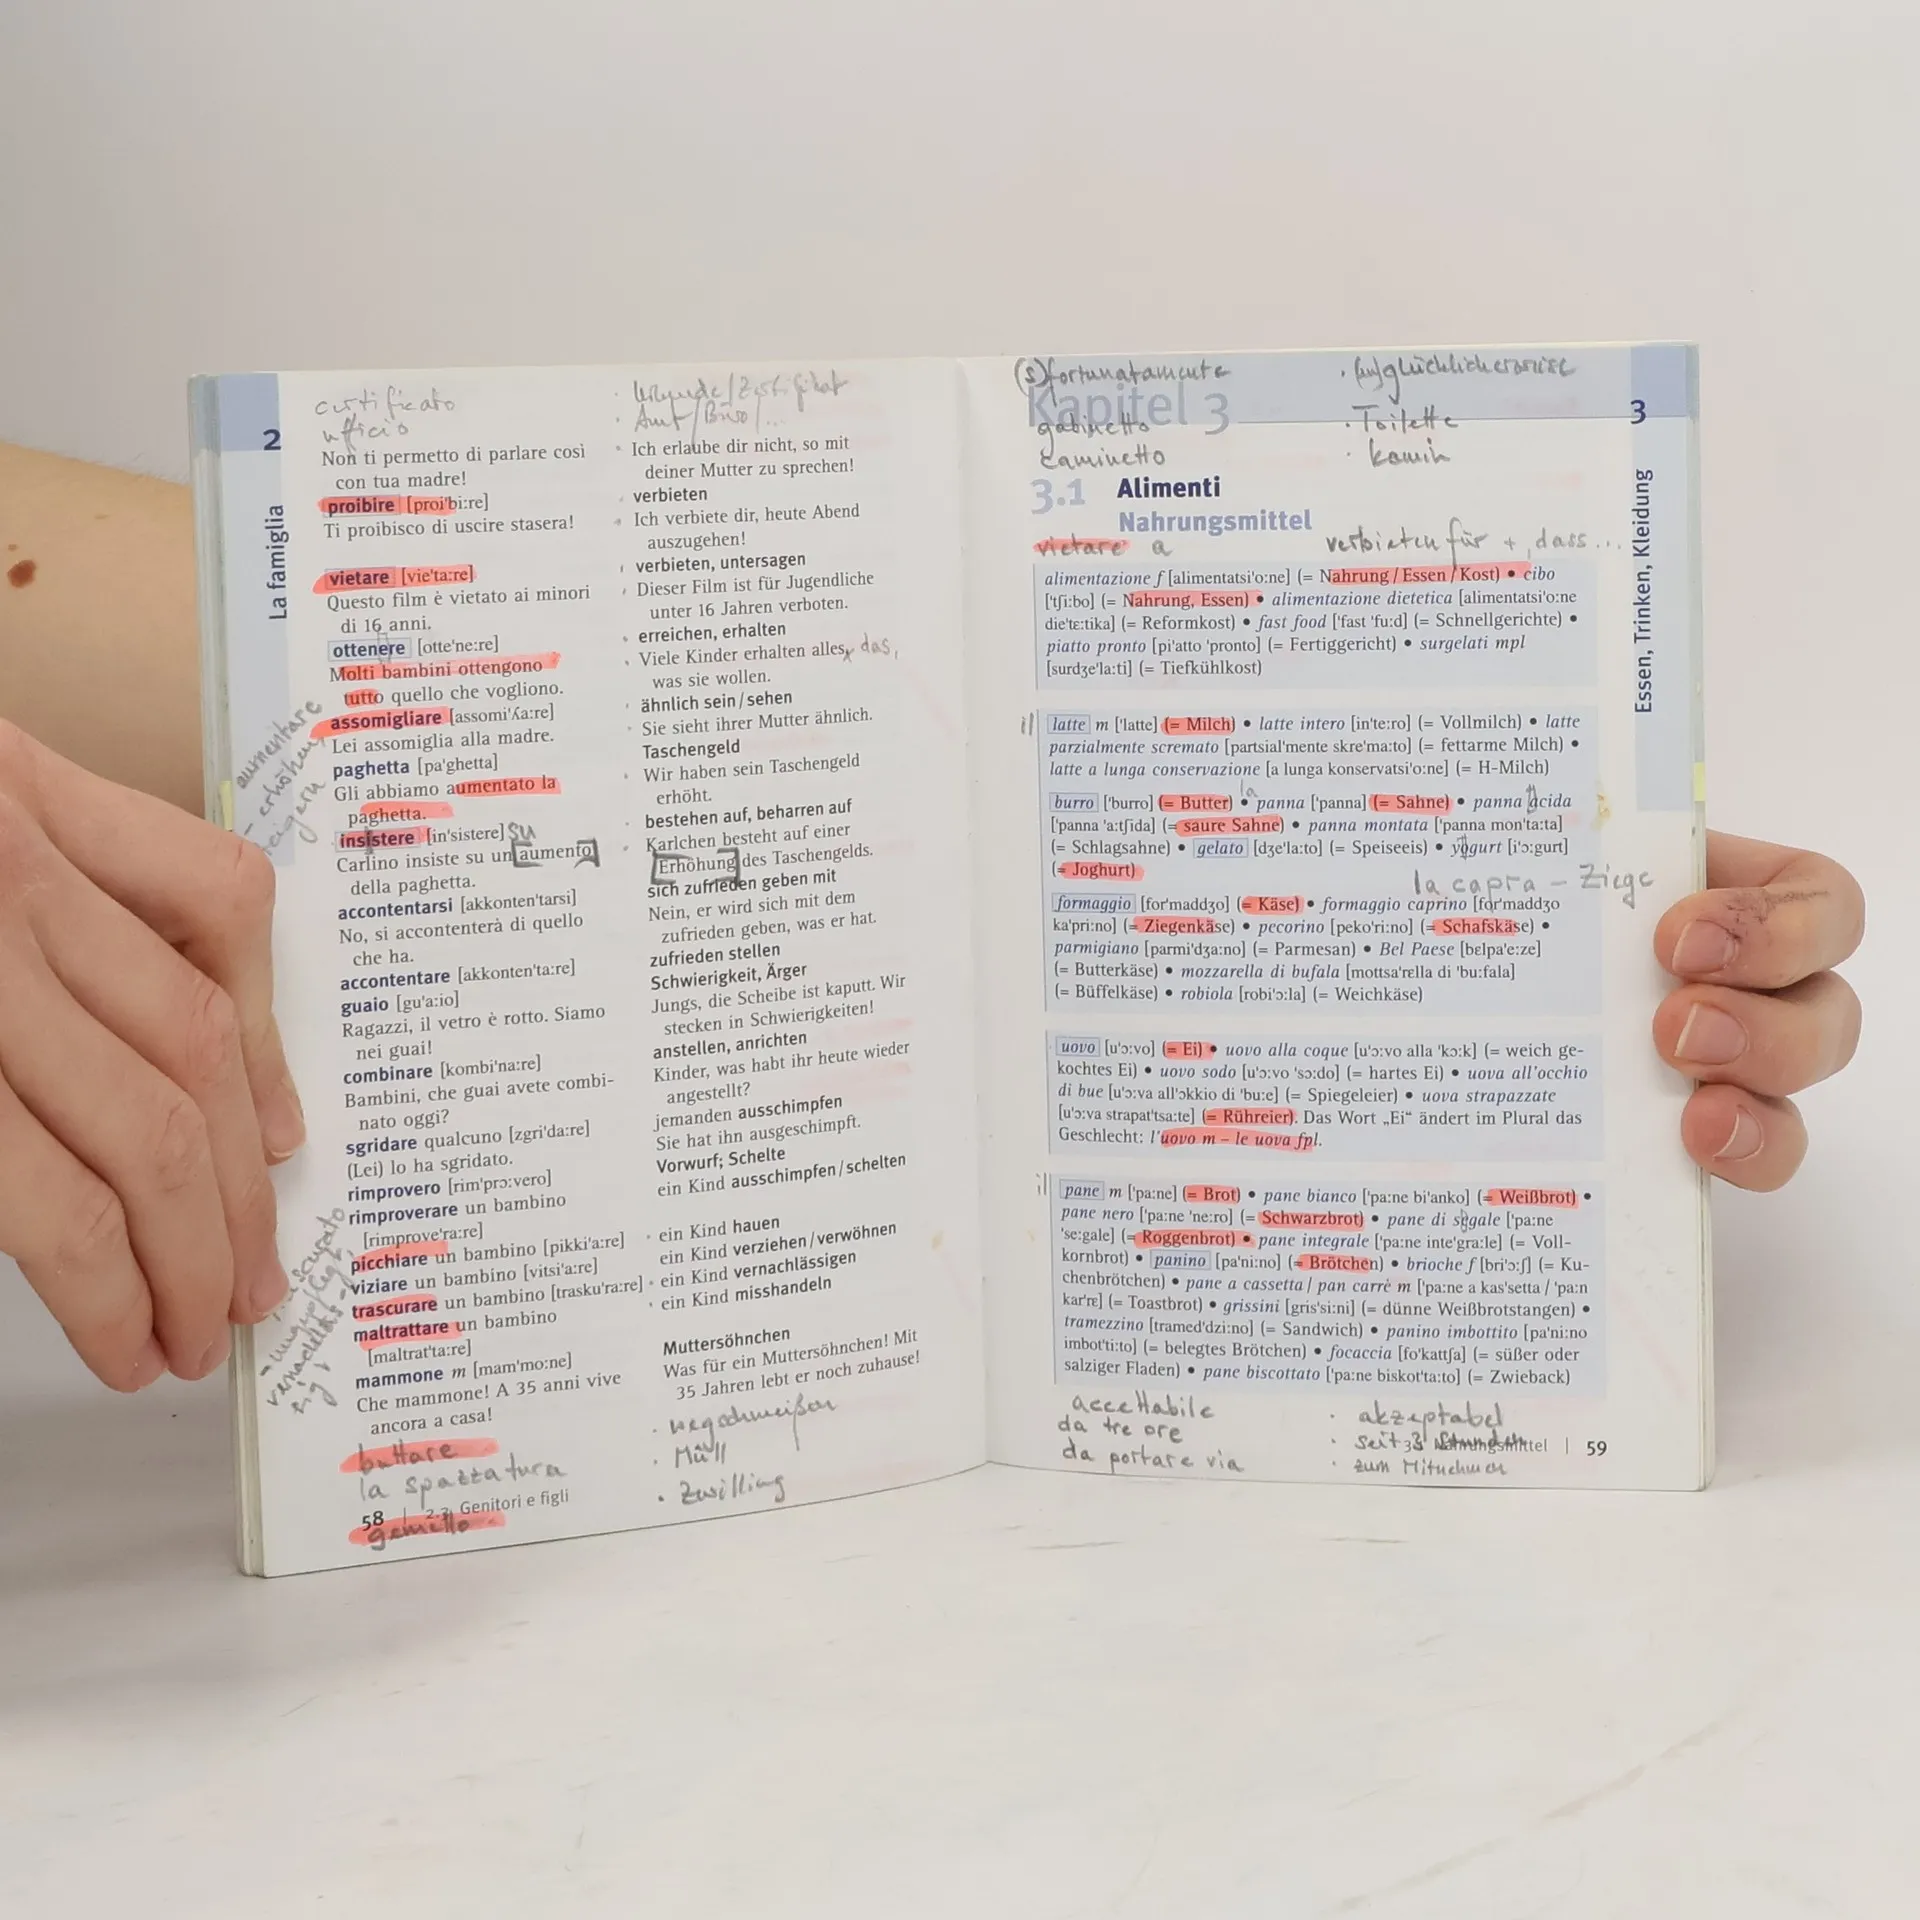 certificato
ufficio
2
La famiglia
Non ti permetto di parlare così
con tua madre!
proibire [proi'bi:re]
Ti proibisco di uscire stasera!
vietare [vie'ta:re]
Questo film è vietato ai minori
di 16 anni.
ottenere [otte'ne:re]
Molti bambini ottengono
tutto quello che vogliono.
assomigliare [assomi'ʎa:re]
Lei assomiglia alla madre.
paghetta [pa'ghetta]
Gli abbiamo aumentato la
paghetta.
insistere [in'sistere] su
Carlino insiste su un aumento
della paghetta.
accontentarsi [akkonten'tarsi]
No, si accontenterà di quello
che ha.
accontentare [akkonten'ta:re]
guaio [gu'a:io]
Ragazzi, il vetro è rotto. Siamo
nei guai!
combinare [kombi'na:re]
Bambini, che guai avete combi-
nato oggi?
sgridare qualcuno [zgri'da:re]
(Lei) lo ha sgridato.
rimprovero [rim'prɔ:vero]
rimproverare un bambino
[rimprove'ra:re]
picchiare un bambino [pikki'a:re]
viziare un bambino [vitsi'a:re]
trascurare un bambino [trasku'ra:re]
maltrattare un bambino
[maltrat'ta:re]
mammone m [mam'mo:ne]
Che mammone! A 35 anni vive
ancora a casa!
buttare
la spazzatura
58 | 2.3 Genitori e figli
gemello
aumentare
- erhöhen,
Urkunde/Zertifikat
Amt/Büro/...
Ich erlaube dir nicht, so mit
deiner Mutter zu sprechen!
verbieten
Ich verbiete dir, heute Abend
auszugehen!
verbieten, untersagen
Dieser Film ist für Jugendliche
unter 16 Jahren verboten.
erreichen, erhalten
Viele Kinder erhalten alles, das,
was sie wollen.
ähnlich sein / sehen
Sie sieht ihrer Mutter ähnlich.
Taschengeld
Wir haben sein Taschengeld
erhöht.
bestehen auf, beharren auf
Karlchen besteht auf einer
Erhöhung des Taschengelds.
sich zufrieden geben mit
Nein, er wird sich mit dem
zufrieden geben, was er hat.
zufrieden stellen
Schwierigkeit, Ärger
Jungs, die Scheibe ist kaputt. Wir
stecken in Schwierigkeiten!
anstellen, anrichten
Kinder, was habt ihr heute wieder
angestellt?
jemanden ausschimpfen
Sie hat ihn ausgeschimpft.
Vorwurf; Schelte
ein Kind ausschimpfen / schelten
ein Kind hauen
ein Kind verziehen / verwöhnen
ein Kind vernachlässigen
ein Kind misshandeln
Muttersöhnchen
Was für ein Muttersöhnchen! Mit
35 Jahren lebt er noch zuhause!
· wegschmeißen
· Müll
· Zwilling
(s)fortunatamente · (un)glücklicherweise
Kapitel 3
gabinetto · Toilette
caminetto · Kamin
3
Essen, Trinken, Kleidung
3.1 Alimenti
Nahrungsmittel
vietare a verbieten für + , dass...
alimentazione f [alimentatsi'o:ne] (= Nahrung / Essen / Kost) • cibo
['tʃi:bo] (= Nahrung, Essen) • alimentazione dietetica [alimentatsi'o:ne
die'tɛ:tika] (= Reformkost) • fast food ['fast 'fu:d] (= Schnellgerichte) •
piatto pronto [pi'atto 'pronto] (= Fertiggericht) • surgelati mpl
[surdʒe'la:ti] (= Tiefkühlkost)
il latte m ['latte] (= Milch) • latte intero [in'te:ro] (= Vollmilch) • latte
parzialmente scremato [partsial'mente skre'ma:to] (= fettarme Milch) •
latte a lunga conservazione [a lunga konservatsi'o:ne] (= H-Milch)
burro ['burro] (= Butter) • la panna ['panna] (= Sahne) • panna acida
['panna 'a:tʃida] (= saure Sahne) • panna montata ['panna mon'ta:ta]
(= Schlagsahne) • gelato [dʒe'la:to] (= Speiseeis) • yogurt [i'ɔ:gurt]
(= Joghurt)
la capra - Ziege
formaggio [for'maddʒo] (= Käse) • formaggio caprino [for'maddʒo
ka'pri:no] (= Ziegenkäse) • pecorino [peko'ri:no] (= Schafskäse) •
parmigiano [parmi'dʒa:no] (= Parmesan) • Bel Paese [bɛlpa'e:ze]
(= Butterkäse) • mozzarella di bufala [mottsa'rella di 'bu:fala]
(= Büffelkäse) • robiola [robi'ɔ:la] (= Weichkäse)
uovo [u'ɔ:vo] (= Ei) • uovo alla coque [u'ɔ:vo alla 'kɔ:k] (= weich ge-
kochtes Ei) • uovo sodo [u'ɔ:vo 'sɔ:do] (= hartes Ei) • uova all'occhio
di bue [u'ɔ:va all'ɔkkio di 'bu:e] (= Spiegeleier) • uova strapazzate
[u'ɔ:va strapat'tsa:te] (= Rühreier). Das Wort „Ei“ ändert im Plural das
Geschlecht: l'uovo m – le uova fpl.
il pane m ['pa:ne] (= Brot) • pane bianco ['pa:ne bi'anko] (= Weißbrot) •
pane nero ['pa:ne 'ne:ro] (= Schwarzbrot) • pane di segale ['pa:ne
'se:gale] (= Roggenbrot) • pane integrale ['pa:ne inte'gra:le] (= Voll-
kornbrot) • panino [pa'ni:no] (= Brötchen) • brioche f [bri'ɔ:ʃ] (= Ku-
chenbrötchen) • pane a cassetta / pan carrè m ['pa:ne a kas'setta / 'pa:n
kar'rɛ] (= Toastbrot) • grissini [gris'si:ni] (= dünne Weißbrotstangen) •
tramezzino [tramed'dzi:no] (= Sandwich) • panino imbottito [pa'ni:no
imbot'ti:to] (= belegtes Brötchen) • focaccia [fo'kattʃa] (= süßer oder
salziger Fladen) • pane biscottato ['pa:ne biskot'ta:to] (= Zwieback)
accettabile · akzeptabel
da tre ore · seit 3 Stunden
Nahrungsmittel | 59
da portare via · zum Mitnehmen